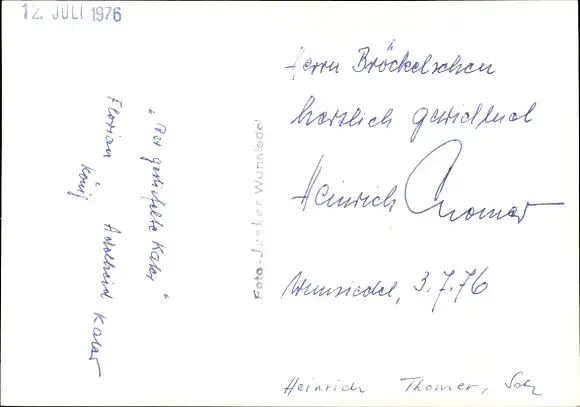 12. JULI 1976
"Der gestiefelte Kater"
Florian Adelheid Kater
König
Foto-Junker Wunsiedel
Herrn Bröckelschen
herzlich gewidmet
Heinrich Thomer
Wunsiedel, 3.7.76
Heinrich Thomer,